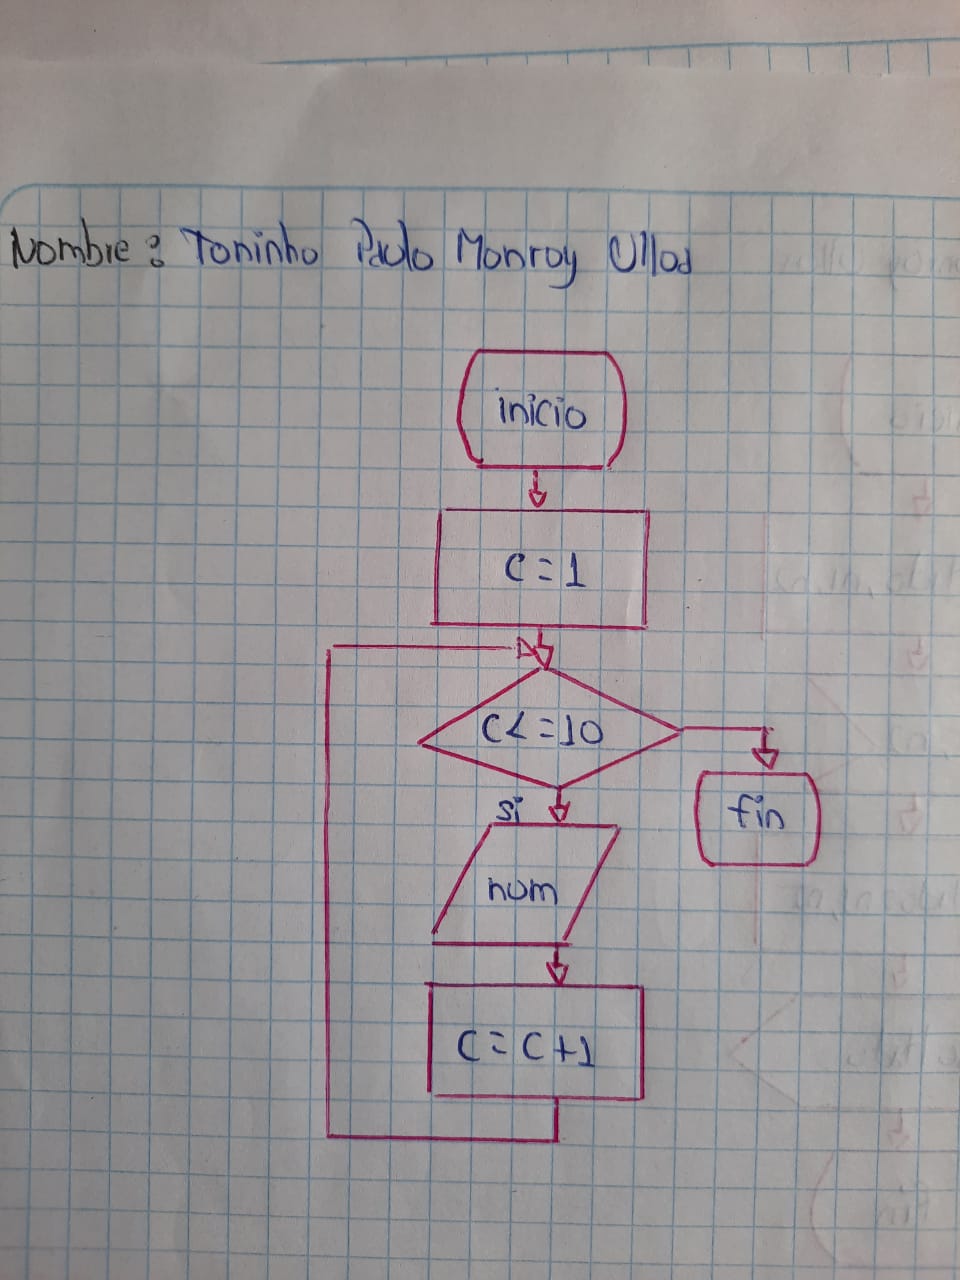 Nombre: Toninho Paulo Monroy Ulloa
inicio
C=1
C<=10
si
fin
num
C=C+1